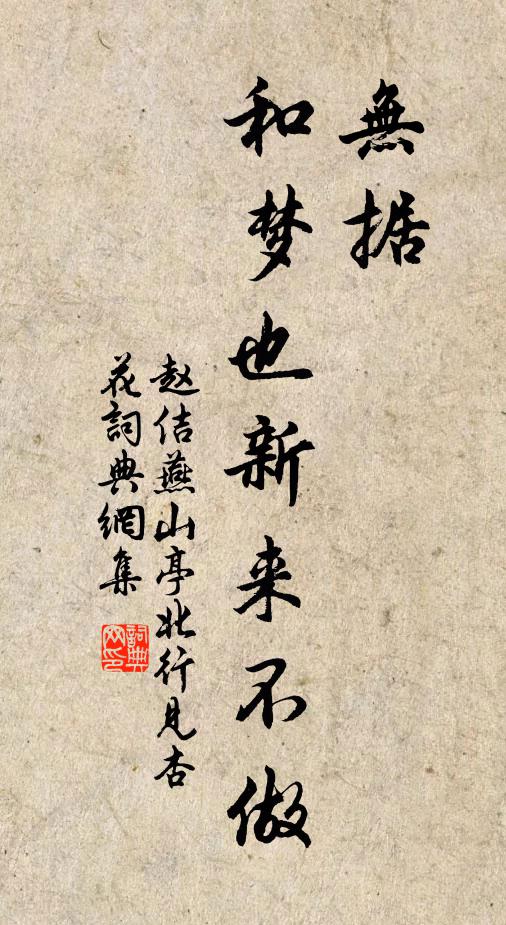 無据
和梦也新来不做
赵佶燕山亭北行见杏
花詞典網集
詞典
网印